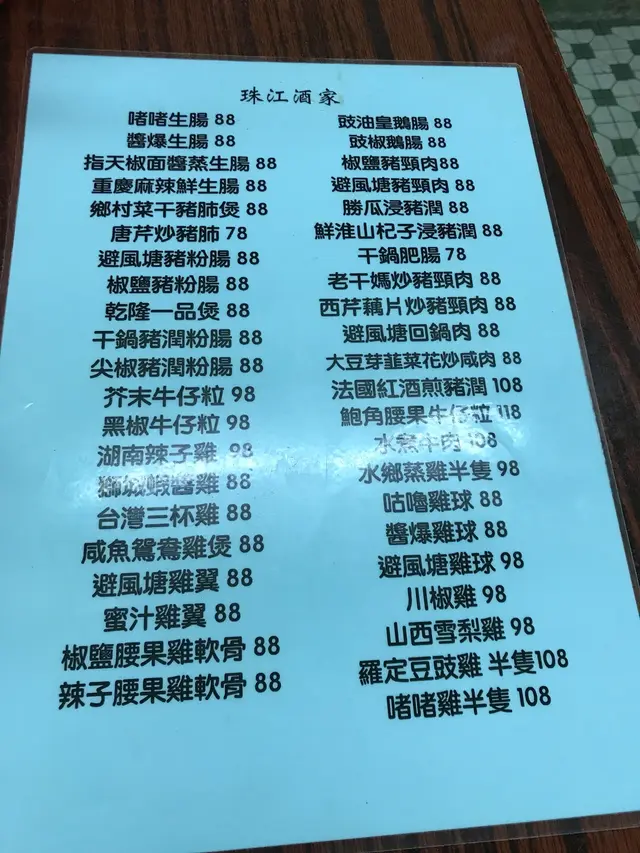 珠江酒家
啫啫生腸 88
醬爆生腸 88
指天椒面醬蒸生腸 88
重慶麻辣鮮生腸 88
鄉村菜干豬肺煲 88
唐芹炒豬肺 78
避風塘豬粉腸 88
椒鹽豬粉腸 88
乾隆一品煲 88
干鍋豬潤粉腸 88
尖椒豬潤粉腸 88
芥末牛仔粒 98
黑椒牛仔粒 98
湖南辣子雞 98
獅城蝦醬雞 88
台灣三杯雞 88
咸魚鴛鴦雞煲 88
避風塘雞翼 88
蜜汁雞翼 88
椒鹽腰果雞軟骨 88
辣子腰果雞軟骨 88
豉油皇鵝腸 88
豉椒鵝腸 88
椒鹽豬頸肉88
避風塘豬頸肉 88
勝瓜浸豬潤 88
鮮淮山杞子浸豬潤 88
干鍋肥腸 78
老干媽炒豬頸肉 88
西芹藕片炒豬頸肉 88
避風塘回鍋肉 88
大豆芽韮菜花炒咸肉 88
法國紅酒煎豬潤 108
鮑角腰果牛仔粒 118
水煮牛肉 108
水鄉蒸雞半隻 98
咕嚕雞球 88
醬爆雞球 88
避風塘雞球 98
川椒雞 98
山西雪梨雞 98
羅定豆豉雞 半隻108
啫啫雞半隻 108